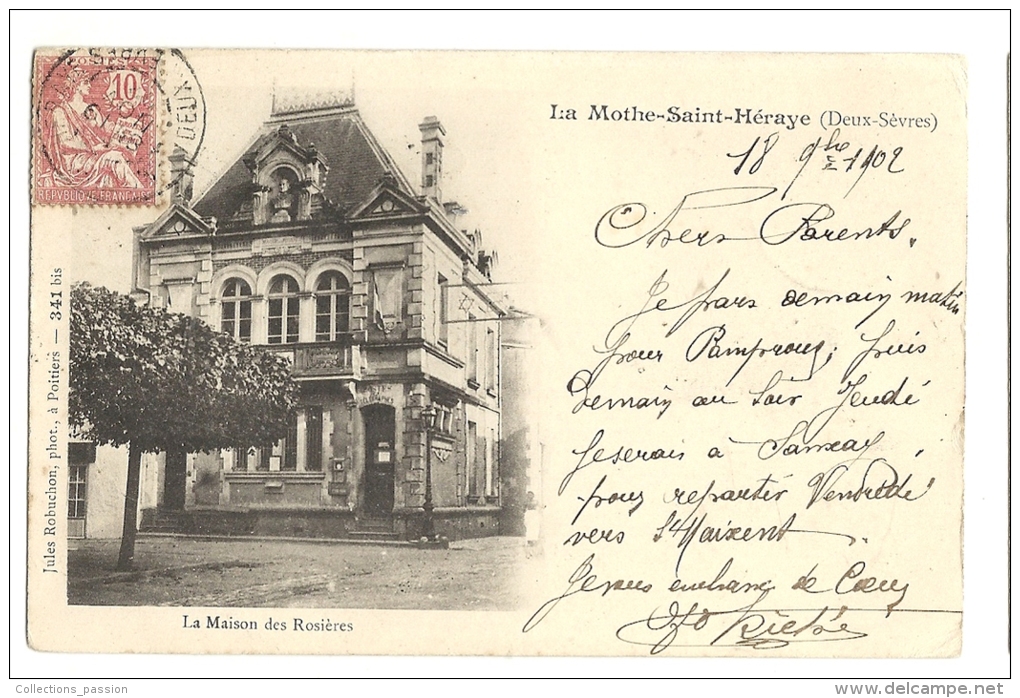 La Mothe-Saint-Héraye (Deux-Sèvres)
18 9bre 1902
Chers Parents,
Je pars demain matin
pour Pamproux, puis
demain au soir Jeudi
je serais à Sanxay
pour repartir Vendredi
vers St Maixent.
Je vous embrasse de Cœur
POSTES
10
REPVBLIQUE FRANÇAISE
DEUX
Jules Robuchon, phot., à Poitiers — 341 bis
POSTES
TELEGRAPHES
La Maison des Rosières
Collections_passion
www.delcampe.net